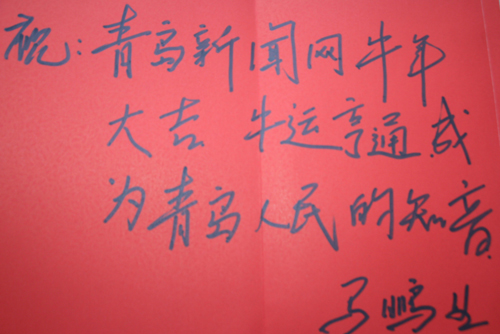 祝:青岛新闻网牛年
大吉 牛运亨通,成
为青岛人民的知音.
马鹏